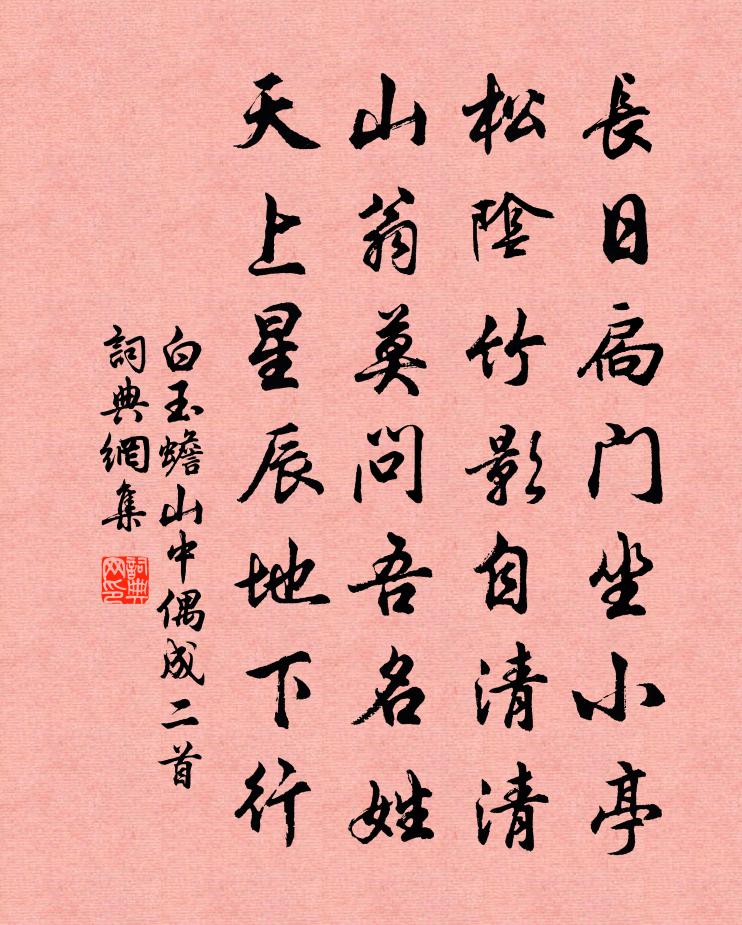 長日扃門坐小亭
松陰竹影自清清
山翁莫問吾名姓
天上星辰地下行
白玉蟾山中偶成二首
詞典網集
詞典网印